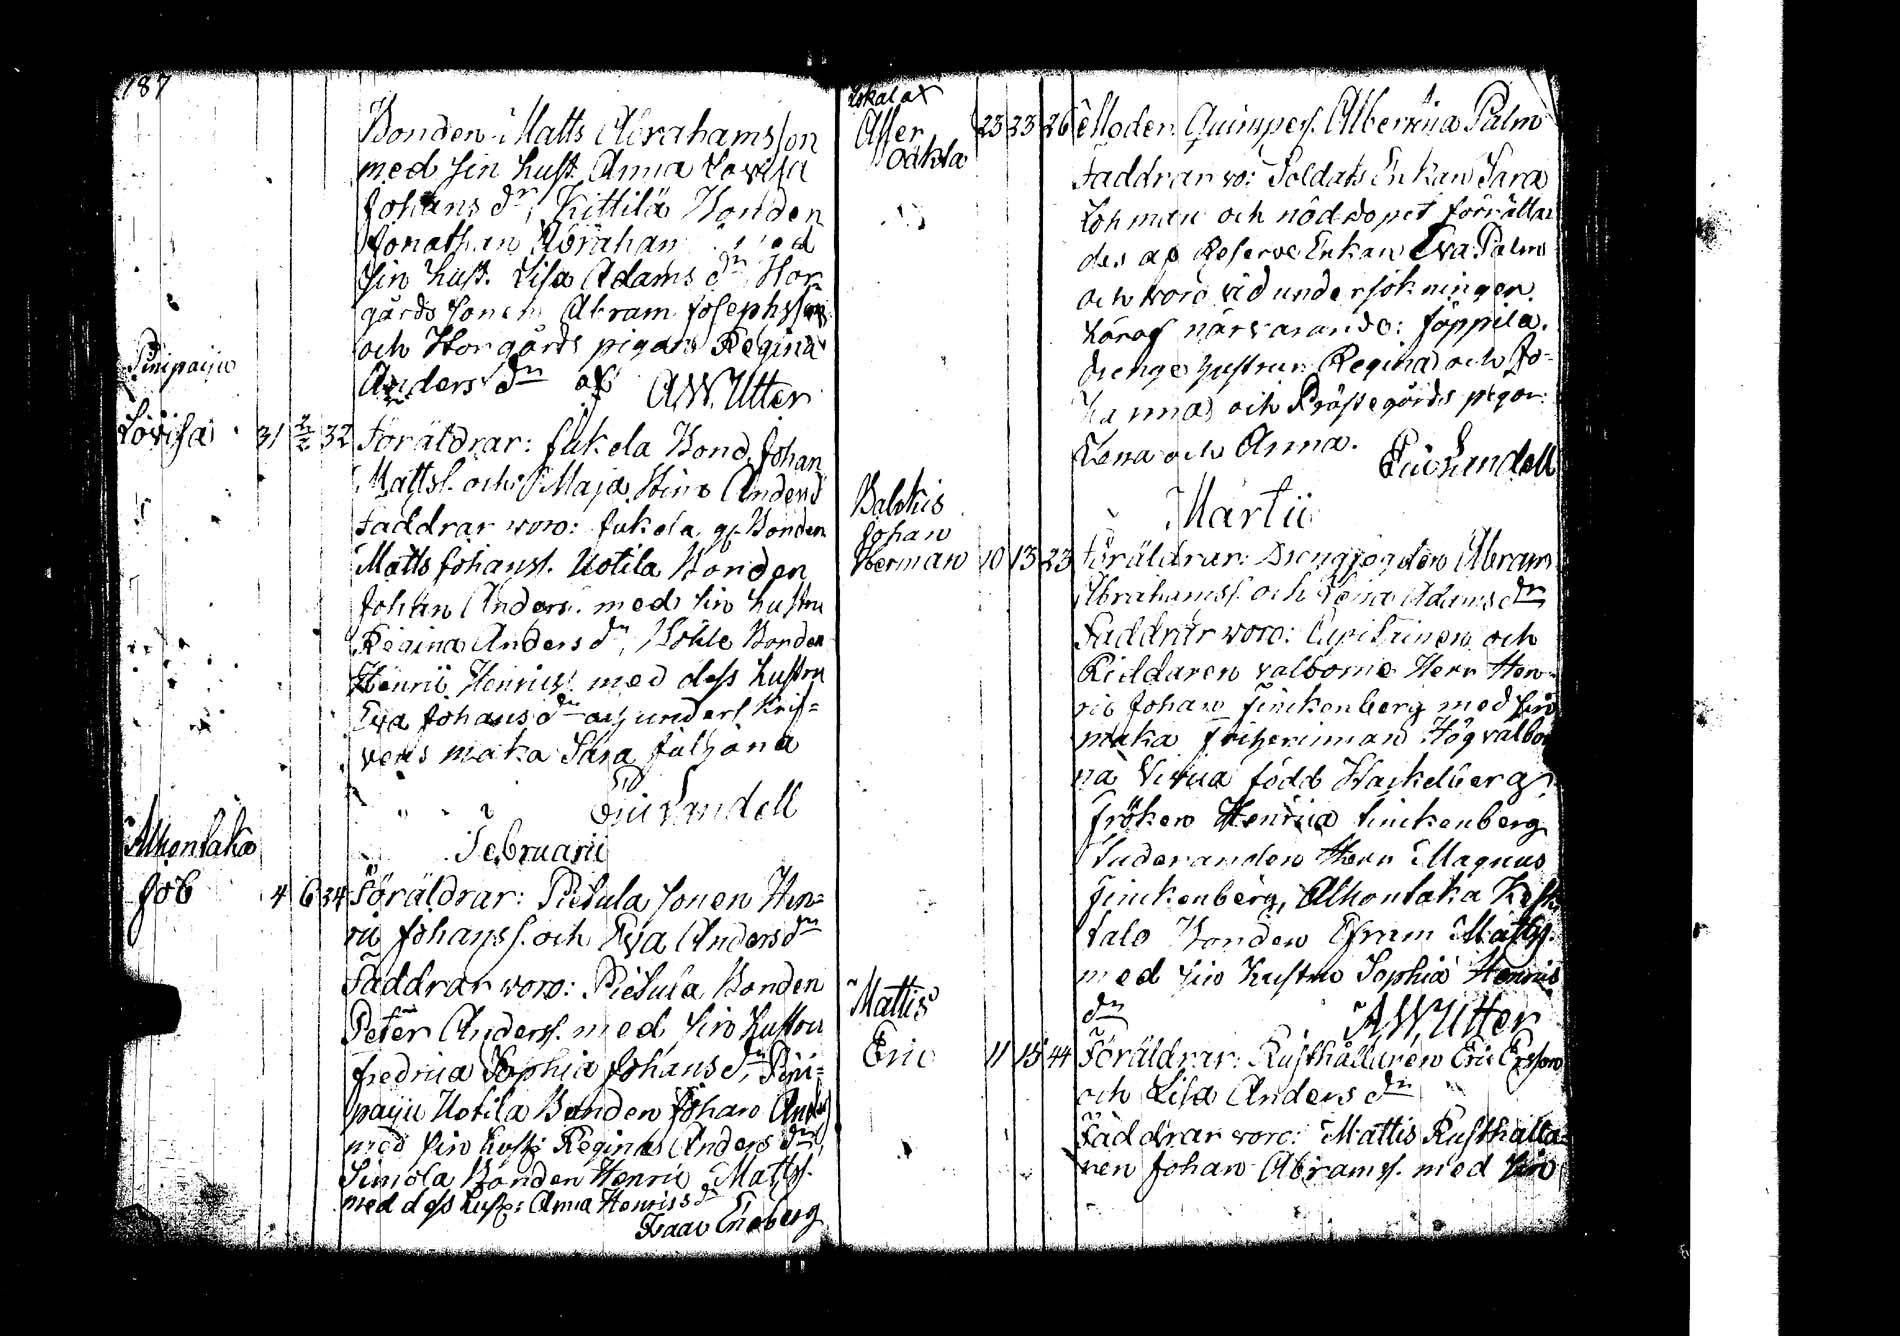 187
Bonden Matts Abrahamsson
med sin hust. Anna Lovisa
Johans dr, Kittilä Bonden
Jonathan Abraham med
sin hust. Lisa Adams dr Hor
gårds sonen Abram Josephsson
och Horgårds pigan Regina
Anders dr af A W Utter
Pinipajju
Lovisa 31 2/2 32 Föräldrar: Jukela Bond. Johan
Mattss. och Maja Stina Anders d
Faddrar woro: Jukela gl. Bonden
Matts Johanss. Uotila Bonden
Johan Anderss. med sin hustru
Regina Anders dr, Bonden
Henric Henricss. med dess hustru
Eva Johans dr och underskrif=
vens maka Sara Juljana
Eric Landell
Februarii
Alhontaka
Job 4 6 34 Föräldrar: Pietula sonen Hen=
ric Johanss. och Eva Anders dr
Faddrar woro: Pietula Bonden
Peter Anderss. med sin hustru
Fredrica Sophia Johans dr, Pini=
pajju Uotila Bonden Johan Anderss
med sin hust: Regina Anders dr,
Simola Bonden Henric Matss.
med dess hust: Anna Henrics dr
Isaac Eneberg
Lokalax
Asser 23 23 26 Moder. Quinspers. Albertina Palm
Faddrar wo: Soldats Enkan Sara
Lohman och nöddopet förrätta
des af Reserve Enkan Eva Palm
och woro vid undersökningen
härof närvarande: Jöppila
drengs hustrun Regina och Jo-
hanna och Prästegårds pigor
Lena och Anna.
Eric Landell
Martii
Balskis
Johan
Herman 10 13 23 Föräldrar: Drengjegden Abram
Abrahamss. och Lena Adams dr
Faddrar woro: Capitainen och
Riddaren valborne Herr Hen=
ric Johan Finckenberg med sin
maka Friherinnan Högvälbor
na född Stackelberg
Fröken Henrica Finckenberg
Studeranden Herr Magnus
Finckenberg, Alhontaka Keski
talo Bonden Efraim Mattss.
med sin hustru Sophia Henrics
dr
A W Utter
Mattis
Eric 11 15 44 Föräldrar: Rusthållaren Eric Ersson
och Lisa Anders dr
Faddrar woro: Mattis Rusthålla=
ren Johan Abramss. med sin